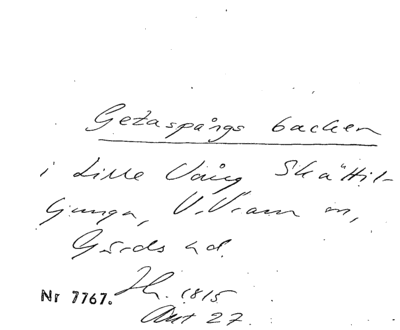 Getaspångs backen
i Lille Vång Skättil-
ljunga, V. Vram sn,
Gärds hd.
Nr 7767. Ih. 1815
Akt 27.